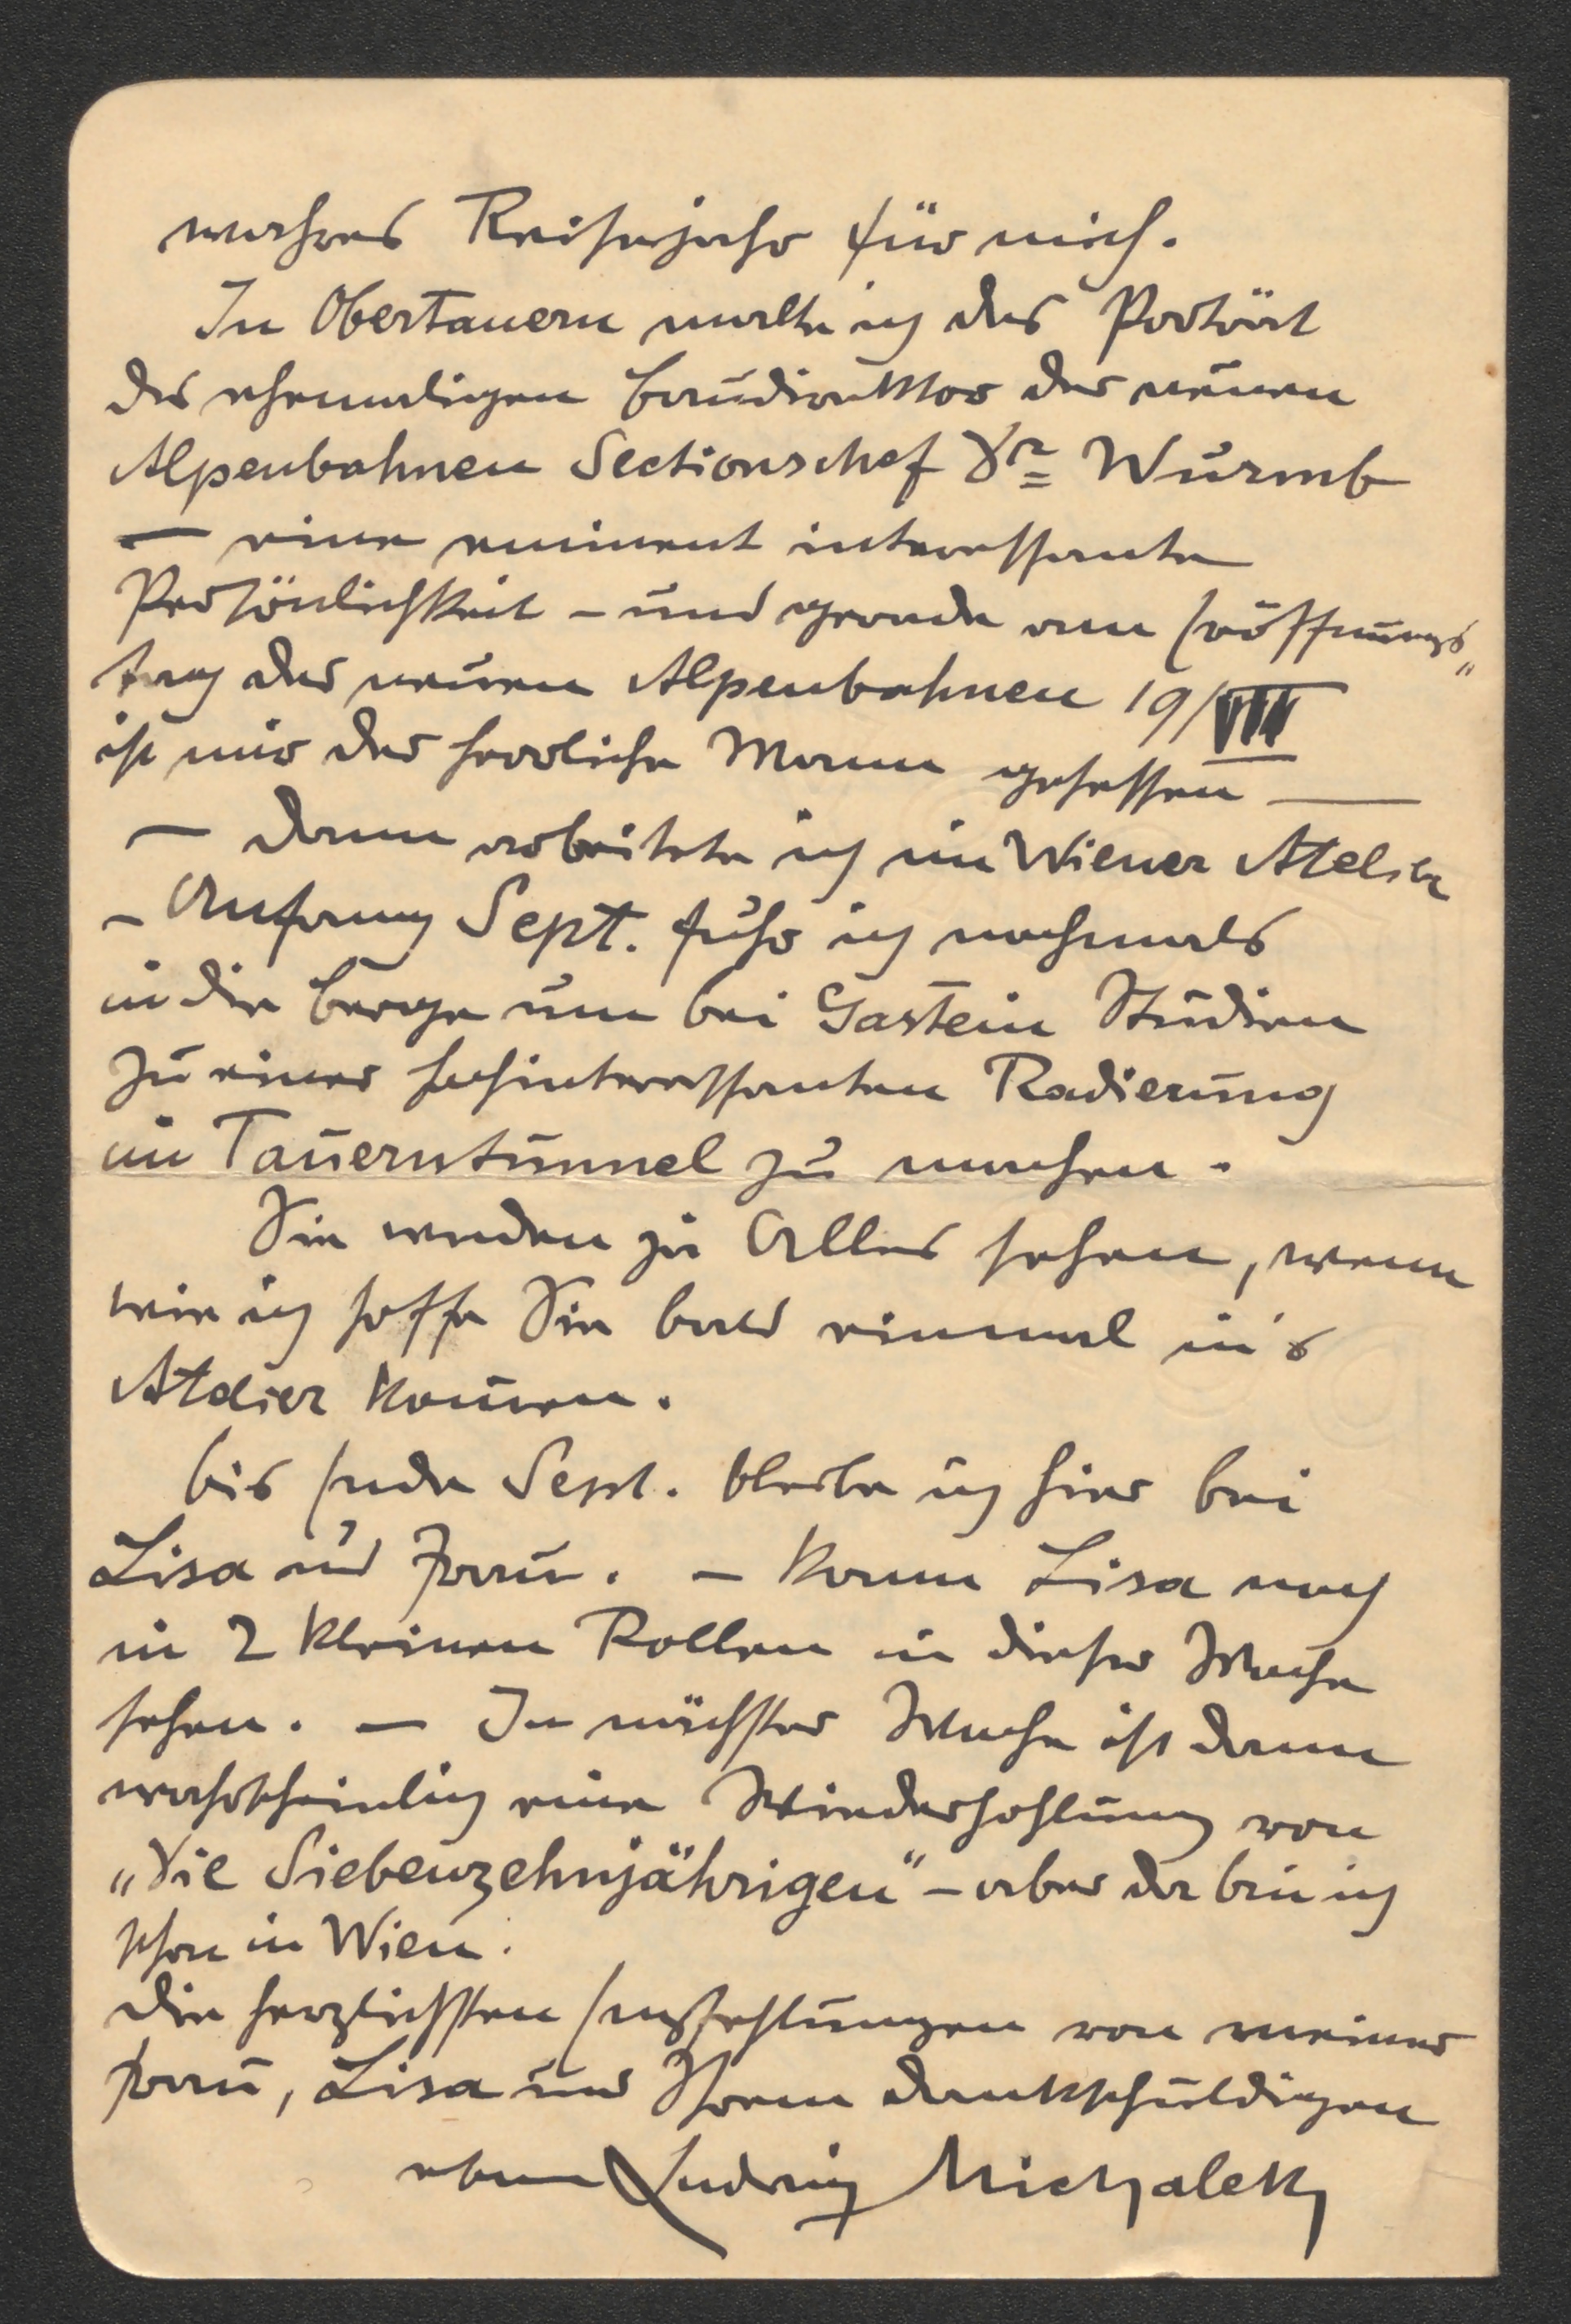 wahres Reisejahr für mich.
In Obertauern malte ich das Porträt
des ehemaligen Baudirektor der neuen
Alpenbahnen Sectionschef Dr Wurmb
— eine eminent interessante
Persönlichkeit – und gerade am Eröffnungs„
tag der neuen Alpenbahnen 19/VII
ist mir der herrliche Mann gesessen —
— dann arbeitete ich im Wiener Atelier
– Anfang Sept. fuhr ich nochmals
in die Berge um bei Gastein Studien
zu einer hochinteressanten Radierung
im Tauerntunnel zu machen.
Sie werden ja Alles sehen, wenn
wie ich hoffe Sie bald einmal in's
Atelier kom̄en.
Bis Ende Sept. bleibe ich hier bei
Lisa und Frau. – Kann Lisa noch
in 2 kleinen Rollen in dieser Woche
sehen. — In nächster Woche ist dann
wahrscheinlich eine Wiederhohlung von
„Die Siebenzehnjährigen“ – aber da bin ich
schon in Wien.
Die herzlichsten Empfehlungen von meiner
Frau, Lisa und Ihrem dankschuldigen
ebenen Ludwig Michalek